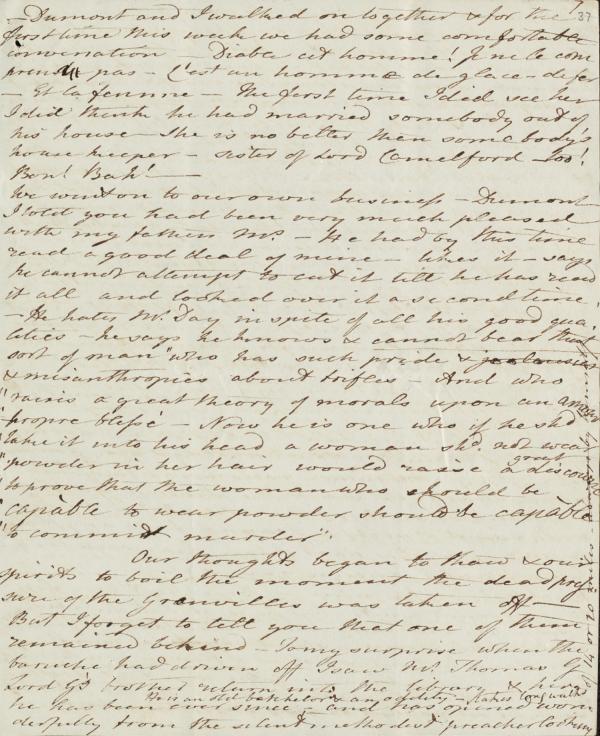 7
37
Dumont and I walked on together & for the
first time this week we had some comfortable
conversation – Diable cet homme! Je ne le com
prends pas – C'est un homme de glace – de fer
– Et la femme – The first time I did see her
I did think he had married somebody out of
his house – She is no better than somebody's
house keeper – sister of Lord Camelford too!
Bon! Bah! —
We went on to our own business – Dumont
I told you had been very much pleased
with my fathers M.S. – He had by this time
read a good deal of mine – likes it – says
he cannot attempt to cut it till he has read
it all and looked over it a second time
– He hates Mr. Day in spite of all his good qua-
lities – he says he knows & cannot bear that
sort of man "who has such pride &
"& misanthropies about trifles – And who
"raises a great theory of morals upon an amour
"propre blessé – Now he is one who if he shd
"take it into his head a woman shd. not wear
"powder in her hair would raise a great discourse
"to prove that the woman who should be
"capable to wear powder should be capable
"to commit murder".
Our thoughts began to thaw & our
spirits to boil the moment the dead pres
sure of the Grenvilles was taken off —
But I forget to tell you that one of them
remained behind – To my surprise when the
barouche had driven off I saw Mr. Thomas G
Lord G's brother return into the library & here
he has been ever since – and has opened won
He is an old batchelor & an oddity – takes long walks
derfully from the silent methodist preacher looking